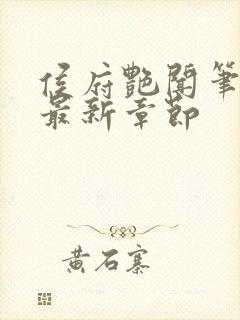 侯府艷聞筆
最新章節
黃石寨